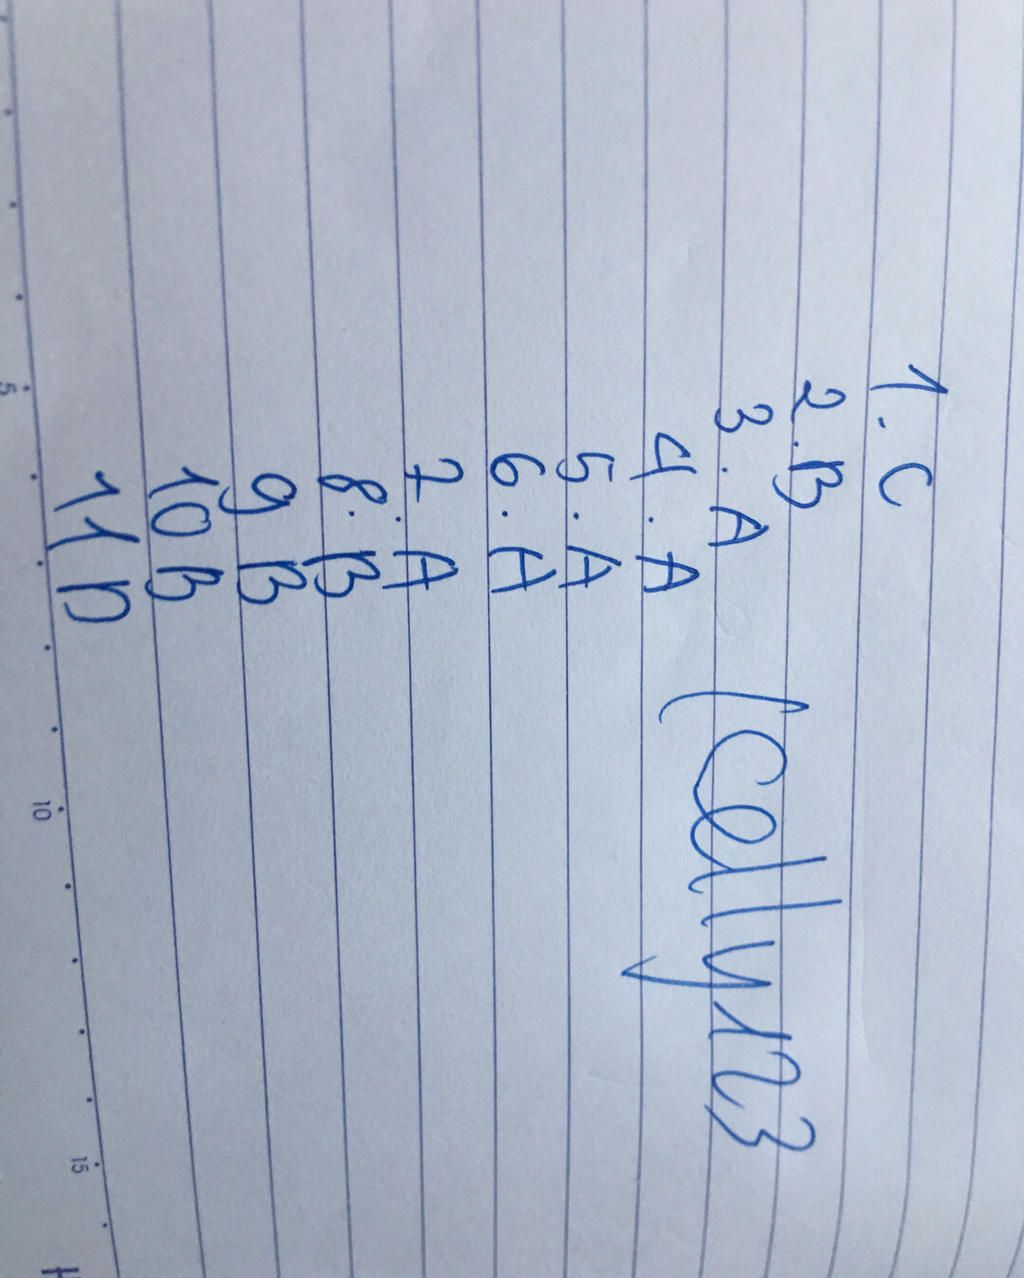 1. C
2. B
3. A
4. A
5. A
6. A
7. A
8. B
9 B
10 B
11 D
(Celly123
5
10
15